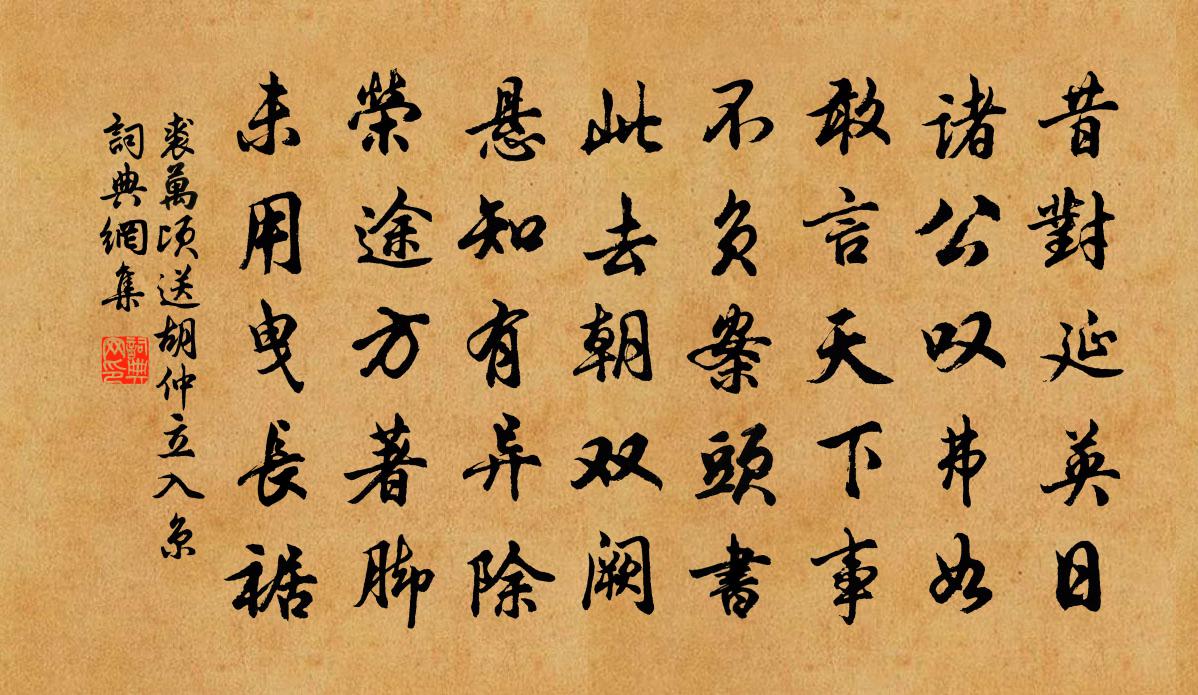 昔對延英日
諸公叹弗如
敢言天下事
不負案頭書
此去朝双阙
悬知有异除
榮途方著脚
未用曳長裾
裘萬頃送胡仲立入京
詞典網集
詞典网印